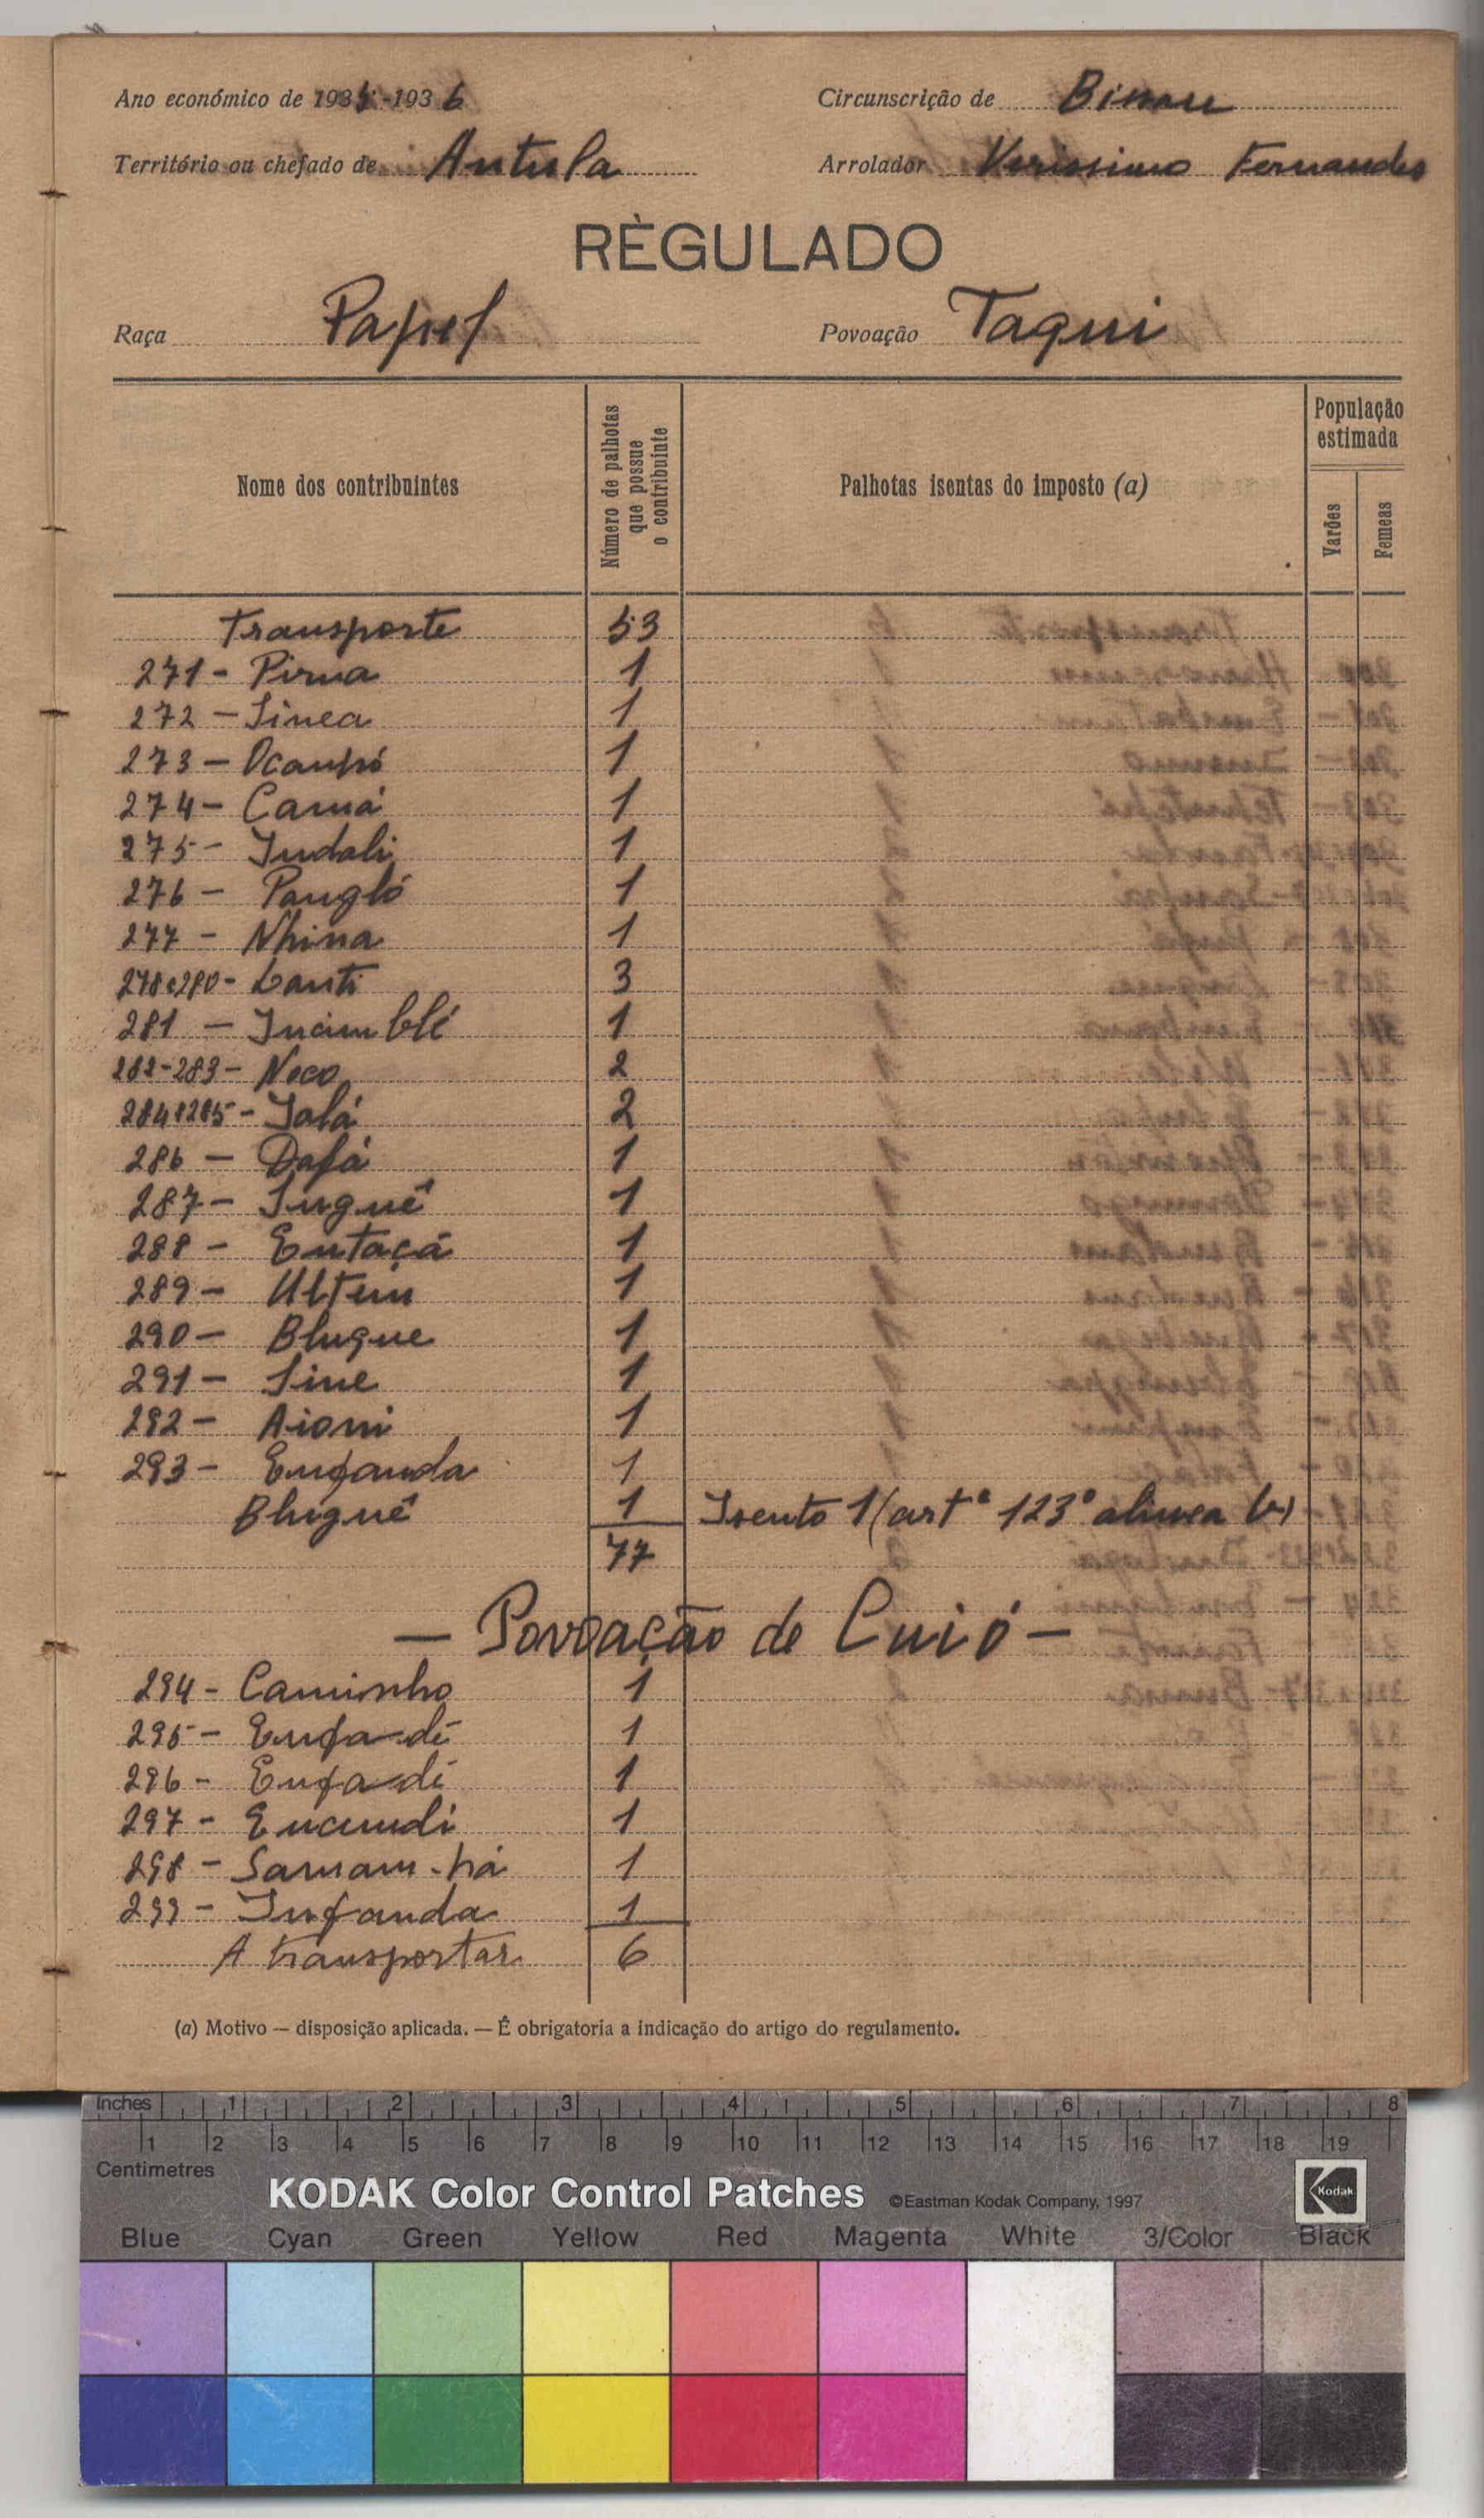 Ano económico de 1935-1936 Circunscrição de Bissau
Território ou chefado de Antula Arrolador Verissimo Fernandes
RÈGULADO
Raça Papel Povoação Taqui
Nome dos contribuintes
Número de palhotas que possue o contribuinte
Palhotas isentas do imposto (a)
População estimada
Varões
Femeas
Transporte 53
271 - Pirna 1
272 - Sinea 1
273 - Ocanhó 1
274 - Camá 1
275 - Indali 1
276 - Pangló 1
277 - Nhina 1
278 e 280 - Lanti 3
281 - Incimblé 1
282-283 - Neco 2
284 e 285 - Jalá 2
286 - Dafá 1
287 - Inguê 1
288 - Entaçá 1
289 - Ultem 1
290 - Blugue 1
291 - Sine 1
292 - Aioni 1
293 - Enfanda 1
Bliguê 1 Isento 1 (artº 123º alinea b)
77
— Povoação de Cuió —
294 - Caminho 1
295 - Enfa-dé 1
296 - Enfa-dé 1
297 - Encundi 1
298 - Samam-há 1
299 - Infanda 1
A transportar 6
(a) Motivo — disposição aplicada. — É obrigatoria a indicação do artigo do regulamento.
Inches 1 2 3 4 5 6 7 8
1 2 3 4 5 6 7 8 9 10 11 12 13 14 15 16 17 18 19
Centimetres
KODAK Color Control Patches ©Eastman Kodak Company, 1997 Kodak
Blue Cyan Green Yellow Red Magenta White 3/Color Black